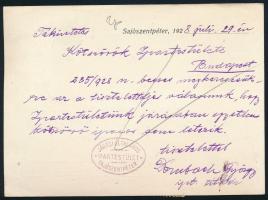 Sajószentpéter, 1928 juli. 29. én
Tekintetes
Kötszövők Ipartestülete
Budapest
235/928 n. becses megkeresésük-
re az a tiszteletteljes válaszunk, hogy
Ipartestületünk járásában egyetlen
kötszövő iparos sem létezik.
tisztelettel
IPARTESTÜLET
SAJÓSZENTPÉTER
Dombach György